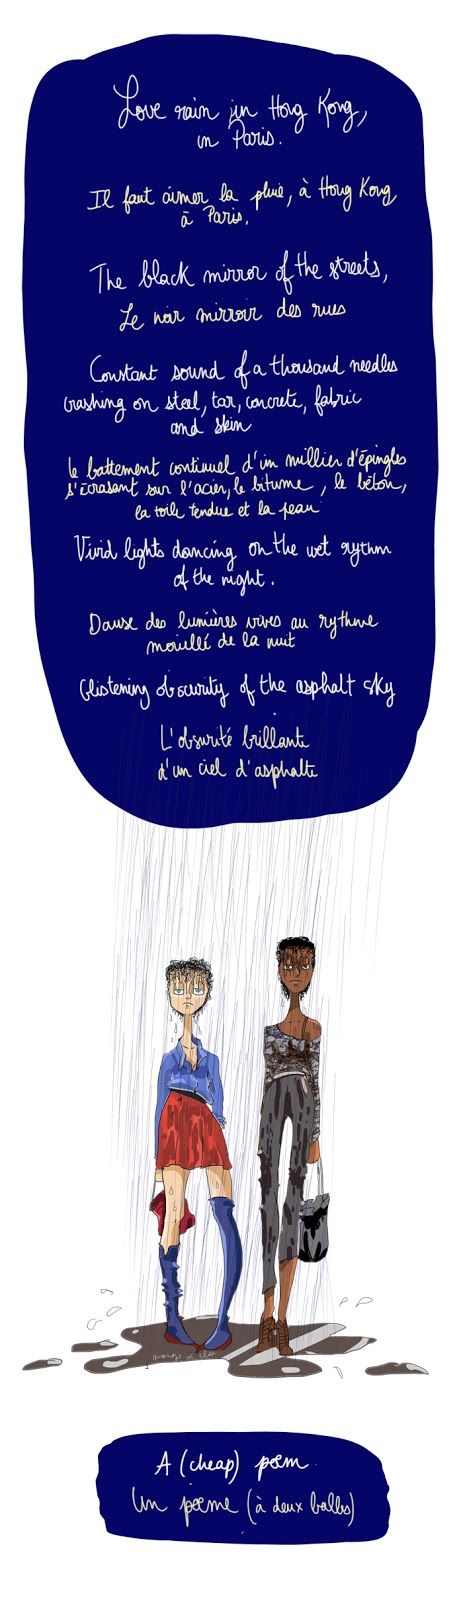 Love rain in Hong Kong,
in Paris.
Il faut aimer la pluie, à Hong Kong
à Paris.
The black mirror of the streets,
Le noir mirroir des rues
Constant sound of a thousand needles
crashing on steel, tar, concrete, fabric
and skin
le battement continuel d'un millier d'épingles
s'écrasant sur l'acier, le bitume, le béton,
la toile tendue et la peau
Vivid lights dancing on the wet rythm
of the night.
Danse des lumières vives au rythme
mouillé de la nuit
Glistening obscurity of the asphalt sky
L'obsurité brillante
d'un ciel d'asphalte
A (cheap) poem
Un poème (à deux balles)